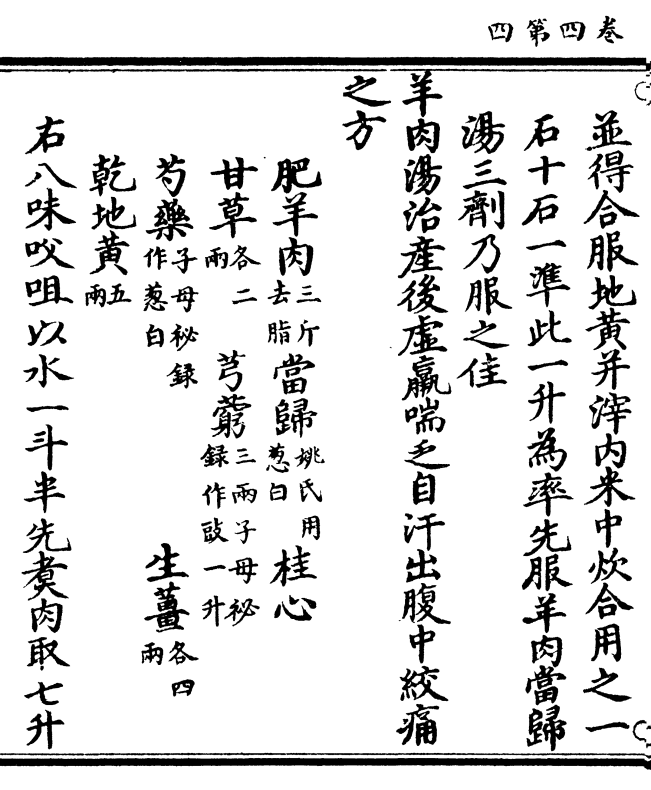 卷四第四
並得合服地黄并滓内米中炊合用之一
石十石一準此一升為率先服羊肉當歸
湯三劑乃服之佳
羊肉湯治産後虚羸喘乏自汗出腹中絞痛
之方
肥羊肉三斤去脂當歸姚氏用葱白桂心
甘草各二兩芎藭三兩子母祕録作豉一升
芍藥子母祕録作葱白生薑各四兩
乾地黄五兩
右八味㕮咀以水一斗半先煮肉取七升